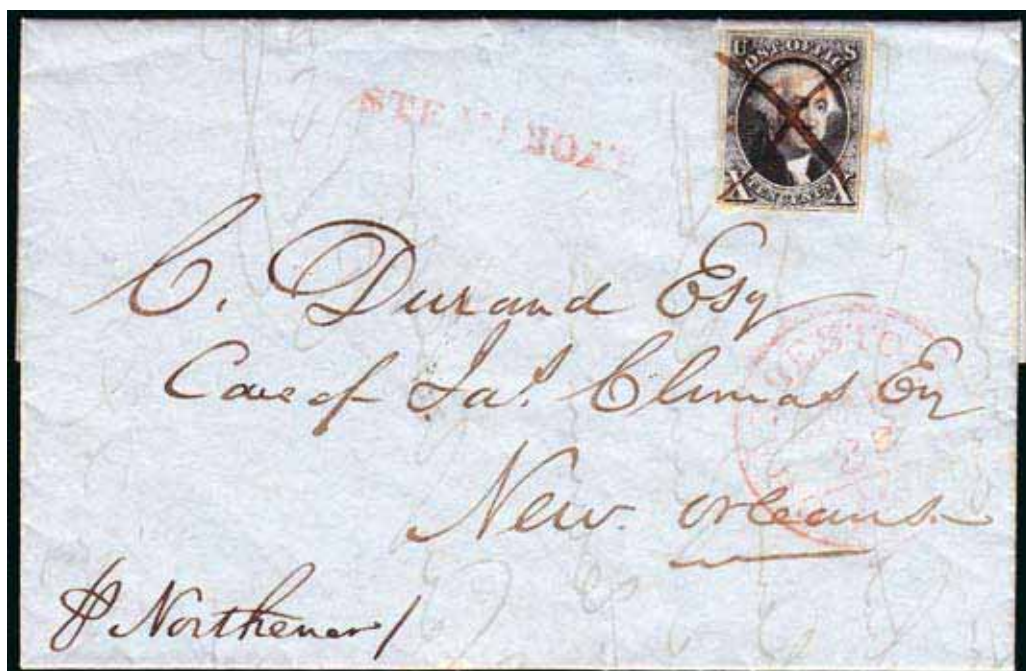 U S
POST OFFICE
X TEN CENTS X
STEAMBOAT
C. Durand Esq
Care of Jas. Climas Esq
New Orleans
23
p Northener